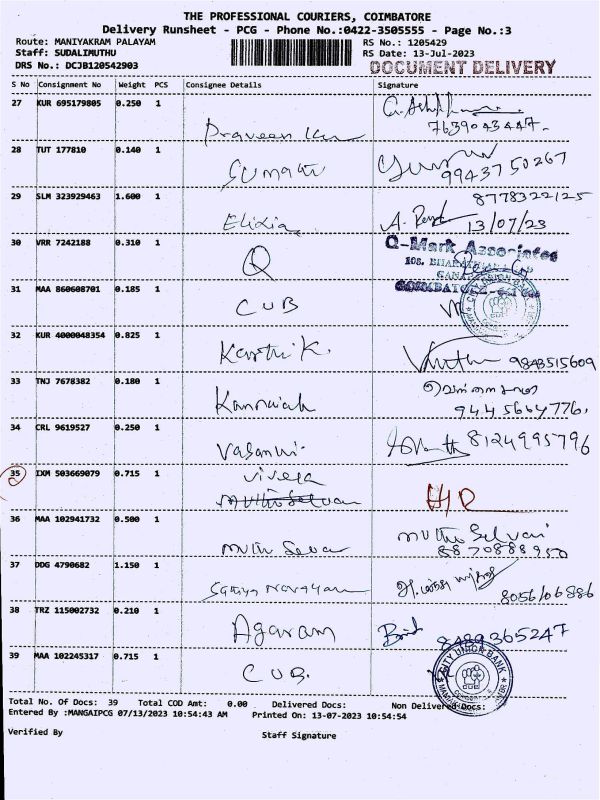 THE PROFESSIONAL COURIERS, COIMBATORE
Delivery Runsheet - PCG - Phone No.:0422-3505555 - Page No.:3
Route: MANIYAKRAM PALAYAM
RS No.: 1205429
Staff: SUDALIMUTHU
RS Date: 13-Jul-2023
DRS No.: DCJB120542903
DOCUMENT DELIVERY
S No Consignment No Weight PCS Consignee Details Signature
27 KUR 695179805 0.250 1
Praveen
7639043447
28 TUT 177810 0.140 1
Sumathi
9943750267
29 SLM 323929463 1.600 1
8778322125
Elixia
13/07/23
30 VRR 7242188 0.310 1
Q
Q-Mark Associates
108, BHARATH
31 MAA 860608701 0.185 1
CUB
32 KUR 4000048354 0.825 1
Karthi K.
9843515609
33 TNJ 7678382 0.180 1
Kannaiah
9445664776
34 CRL 9619527 0.250 1
Vasanthi
8124995796
35 IXM 503669079 0.715 1
36 MAA 102941732 0.500 1
Muthu Selvan
Muthu Selvan
8870888950
37 DDG 4790682 1.150 1
Sathya Narayan
8056106886
38 TRZ 115002732 0.210 1
Agaram
8489365247
39 MAA 102245317 0.715 1
CUB.
CITY UNION BANK
Total No. Of Docs: 39 Total COD Amt: 0.00 Delivered Docs: Non Delivered Docs:
Entered By :MANGAIPCG 07/13/2023 10:54:43 AM Printed On: 13-07-2023 10:54:54
Verified By
Staff Signature